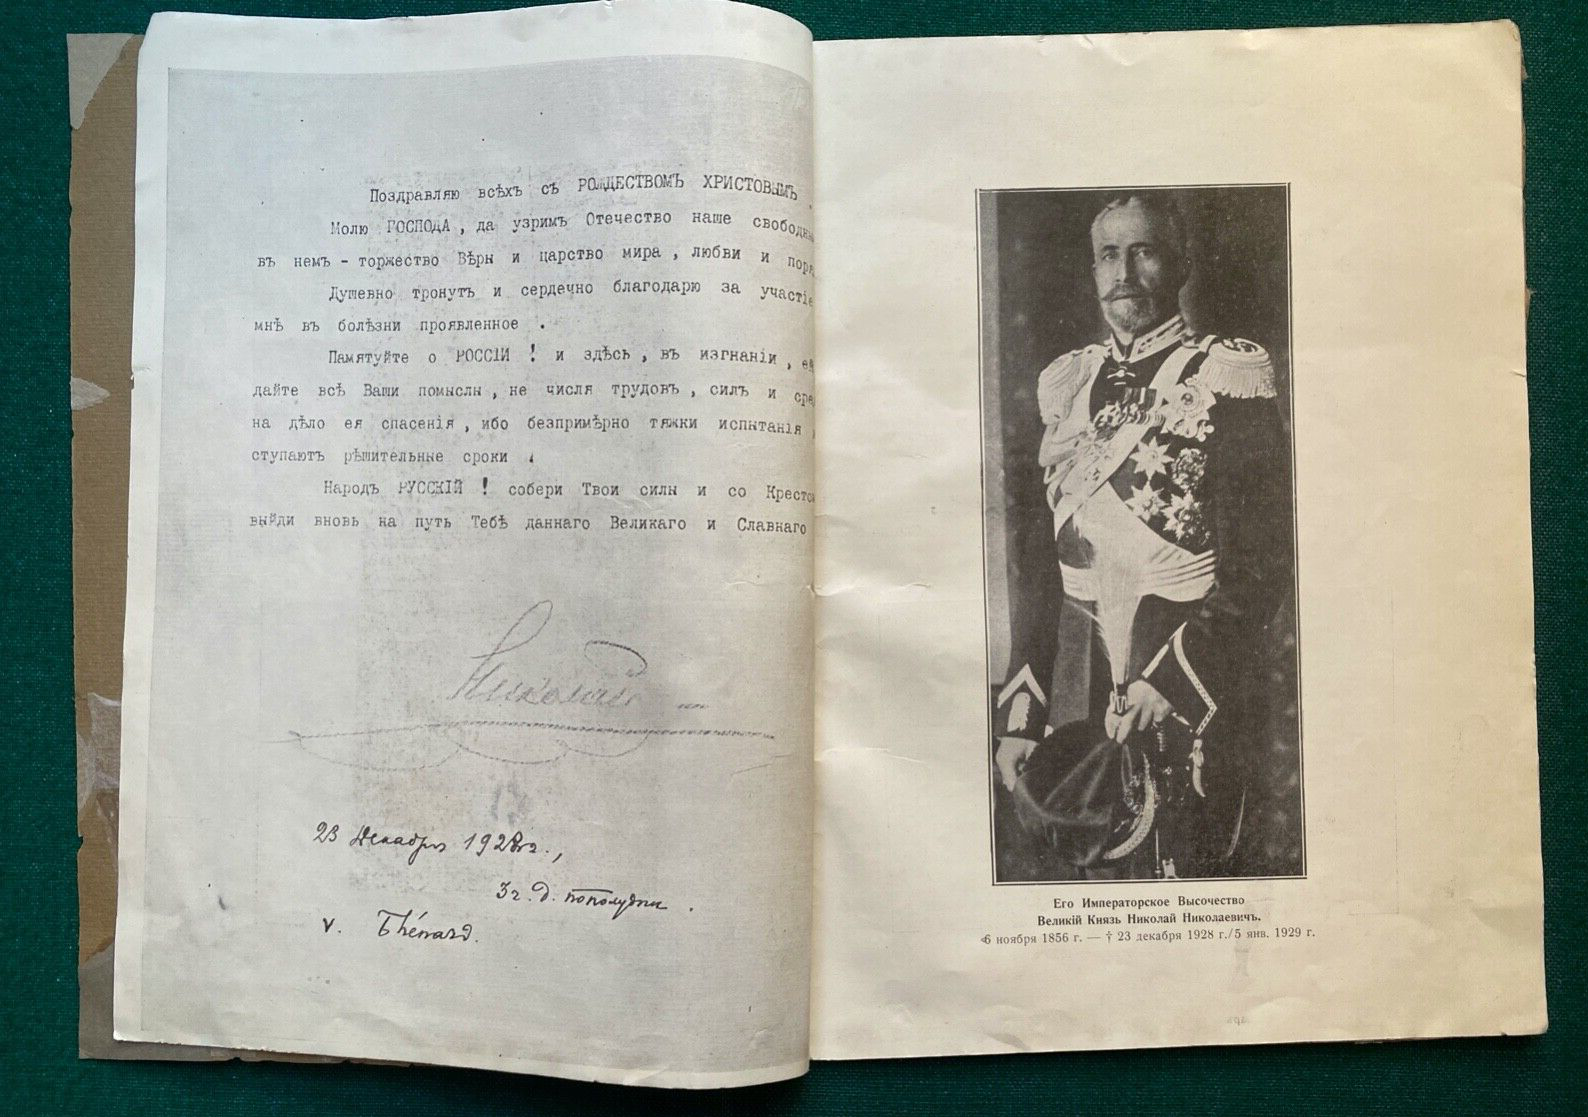 Поздравляю всѣхъ съ РОЖДЕСТВОМЪ ХРИСТОВЫМЪ .
Молю ГОСПОДА , да узримъ Отечество наше свободн
въ немъ - торжество Вѣры и царство мира , любви и поря
Душевно тронутъ и сердечно благодарю за участіе
мнѣ въ болѣзни проявленное .
Памятуйте о РОССІИ ! и здѣсь , въ изгнаніи , ей
дайте всѣ Ваши помыслы , не числя трудовъ , силъ и сре
на дѣло ея спасенія , ибо безпримѣрно тяжки испытанія
ступаютъ рѣшительные сроки .
Народъ РУССКІЙ ! собери Твои силы и со Кресто
выйди вновь на путь Тебѣ даннаго Великаго и Славнаго
Николай
23 Декабря 1928 г.,
3 ч. д. пополудни .
v. Thénard.
Его Императорское Высочество
Великій Князь Николай Николаевичъ.
6 ноября 1856 г. — † 23 декабря 1928 г./5 янв. 1929 г.